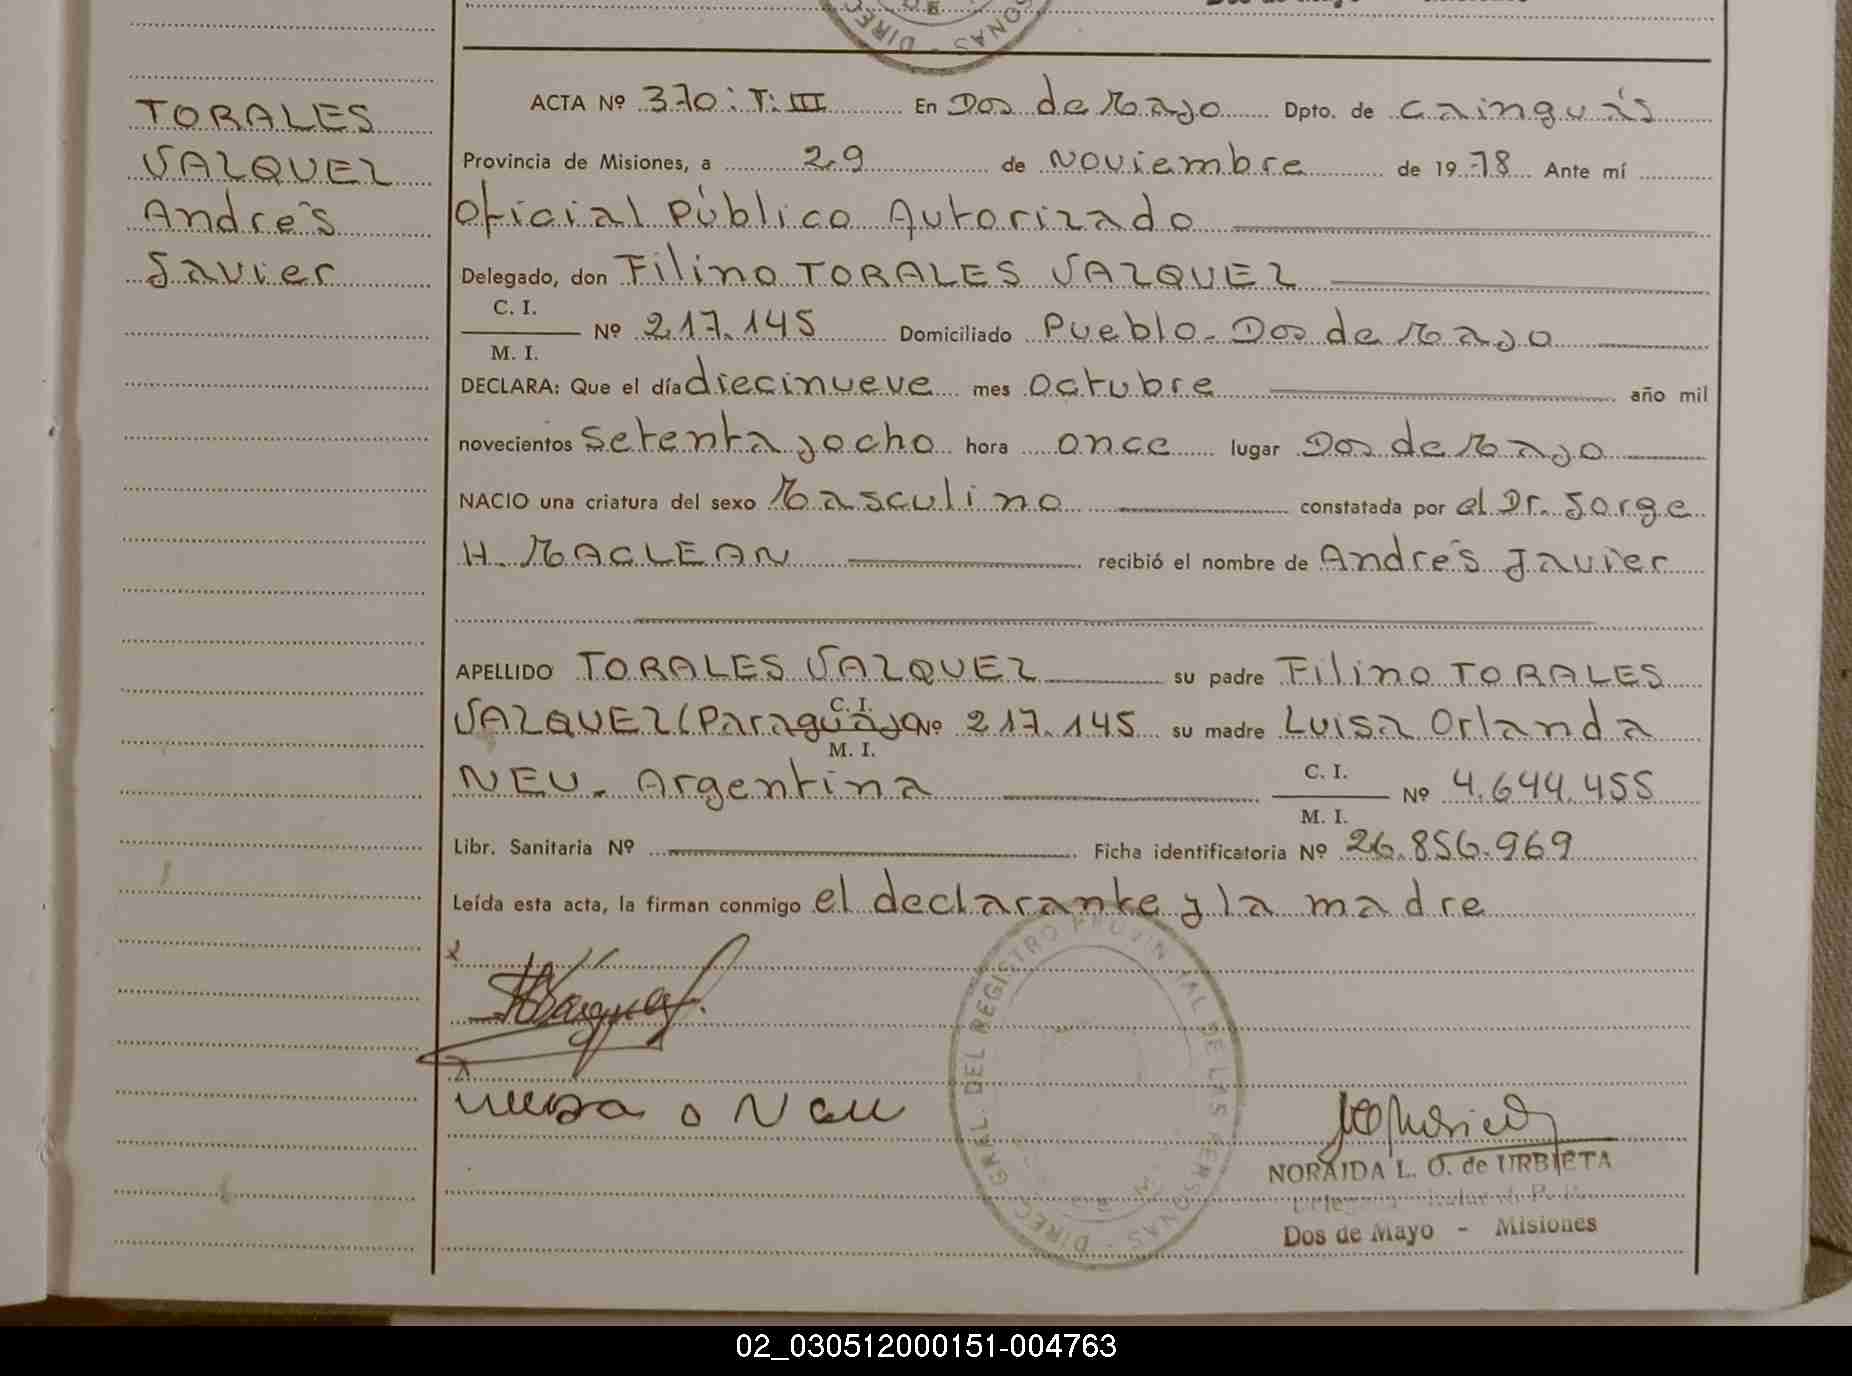 TORALES
VAZQUEZ
Andrés
Javier
ACTA Nº 370: T: III En Dos de Mayo Dpto. de Cainguás
Provincia de Misiones, a 29 de Noviembre de 1978 Ante mí
Oficial Público Autorizado
Delegado, don Filino TORALES VAZQUEZ
C. I.
M. I.
Nº 217.145 Domiciliado Pueblo - Dos de Mayo
DECLARA: Que el día diecinueve mes Octubre año mil
novecientos setenta y ocho hora once lugar Dos de Mayo
NACIO una criatura del sexo Masculino constatada por el Dr. Jorge
H. MACLEAN recibió el nombre de Andrés Javier
APELLIDO TORALES VAZQUEZ su padre Filino TORALES
VAZQUEZ (Paraguayo) C. I. M. I. Nº 217.145 su madre Luisa Orlanda
NEU - Argentina C. I. M. I. Nº 4.644.455
Libr. Sanitaria Nº Ficha identificatoria Nº 26.856.969
Leída esta acta, la firman conmigo el declarante y la madre
DIREC. GRAL. DEL REGISTRO PROVINCIAL DE LAS PERSONAS
Luisa O Neu
NORAIDA L. O. de URBIETA
Dos de Mayo - Misiones
02_030512000151-004763